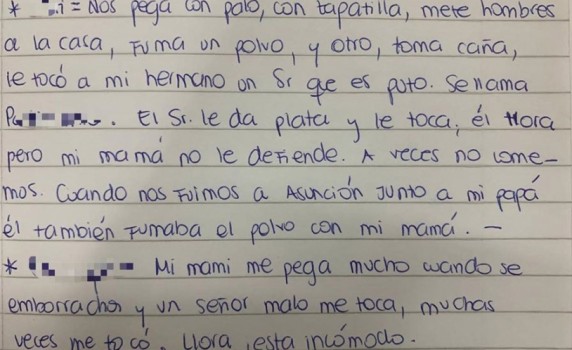 * i = Nos pega con palo, con zapatilla, mete hombres
a la casa, Fuma un polvo, y otro, toma caña,
le tocó a mi hermano un Sr que es puto. Se llama
P. El Sr. le da plata y le toca, él llora
pero mi mamá no le defiende. A veces no come-
mos. Cuando nos fuimos a Asunción junto a mi papá
él también fumaba el polvo con mi mamá. —
* Mi mami me pega mucho cuando se
emborracha y un señor malo me toca, muchas
veces me tocó. Llora, esta incómodo.